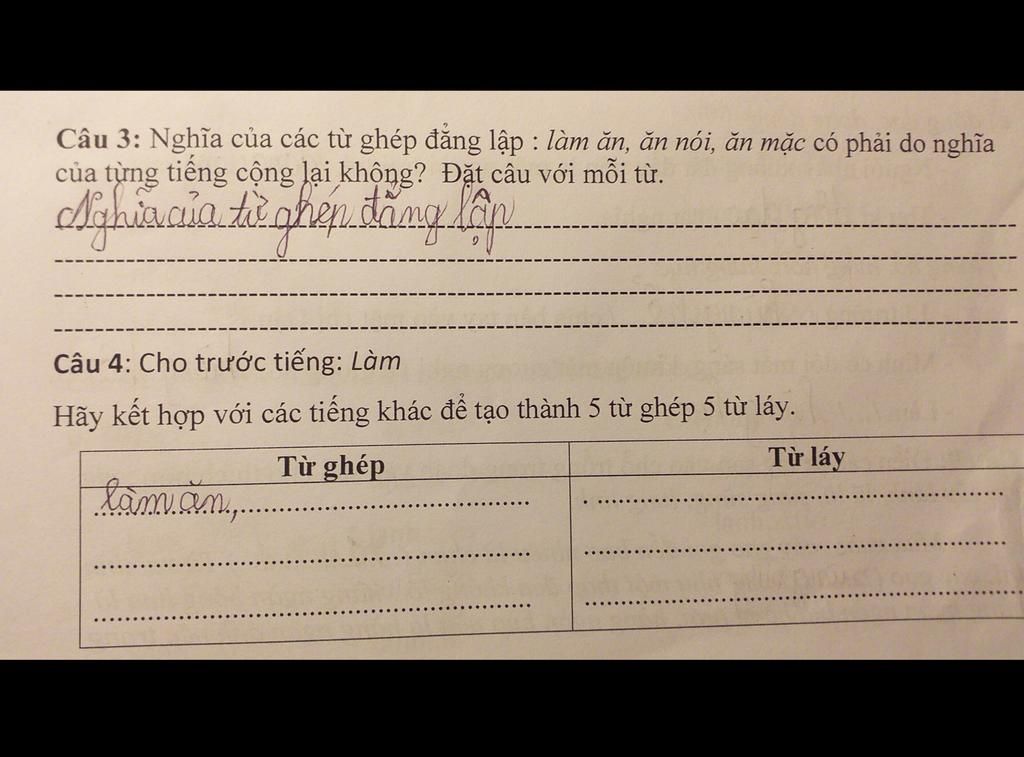 Câu 3: Nghĩa của các từ ghép đẳng lập : làm ăn, ăn nói, ăn mặc có phải do nghĩa
của từng tiếng cộng lại không? Đặt câu với mỗi từ.
Nghĩa của từ ghép đẳng lập
Câu 4: Cho trước tiếng: Làm
Hãy kết hợp với các tiếng khác để tạo thành 5 từ ghép 5 từ láy.
Từ ghép
Từ láy
làm ăn,